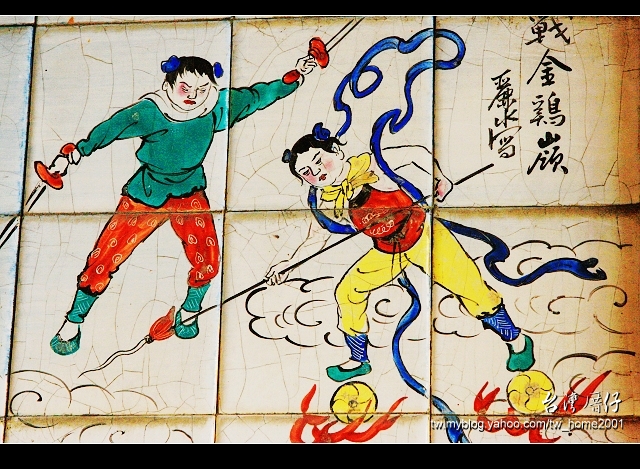 戰金鷄嶺
蘇水寫
台灣厝仔
tw.myblog.yahoo.com/tw_home2001